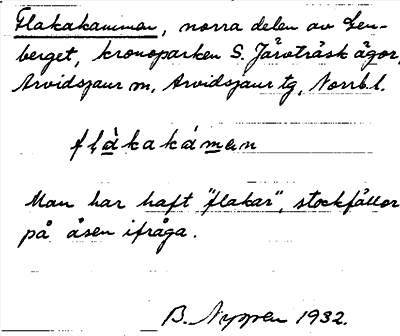 Flakakamman, norra delen av Len-
berget, kronoparken S. Järvträsk ägor,
Arvidsjaur sn, Arvidsjaur tg, Norrb. l.
flàkakáman
Man har haft "flakar", stockfällor
på åsen ifråga.
B. Nyppen 1932.